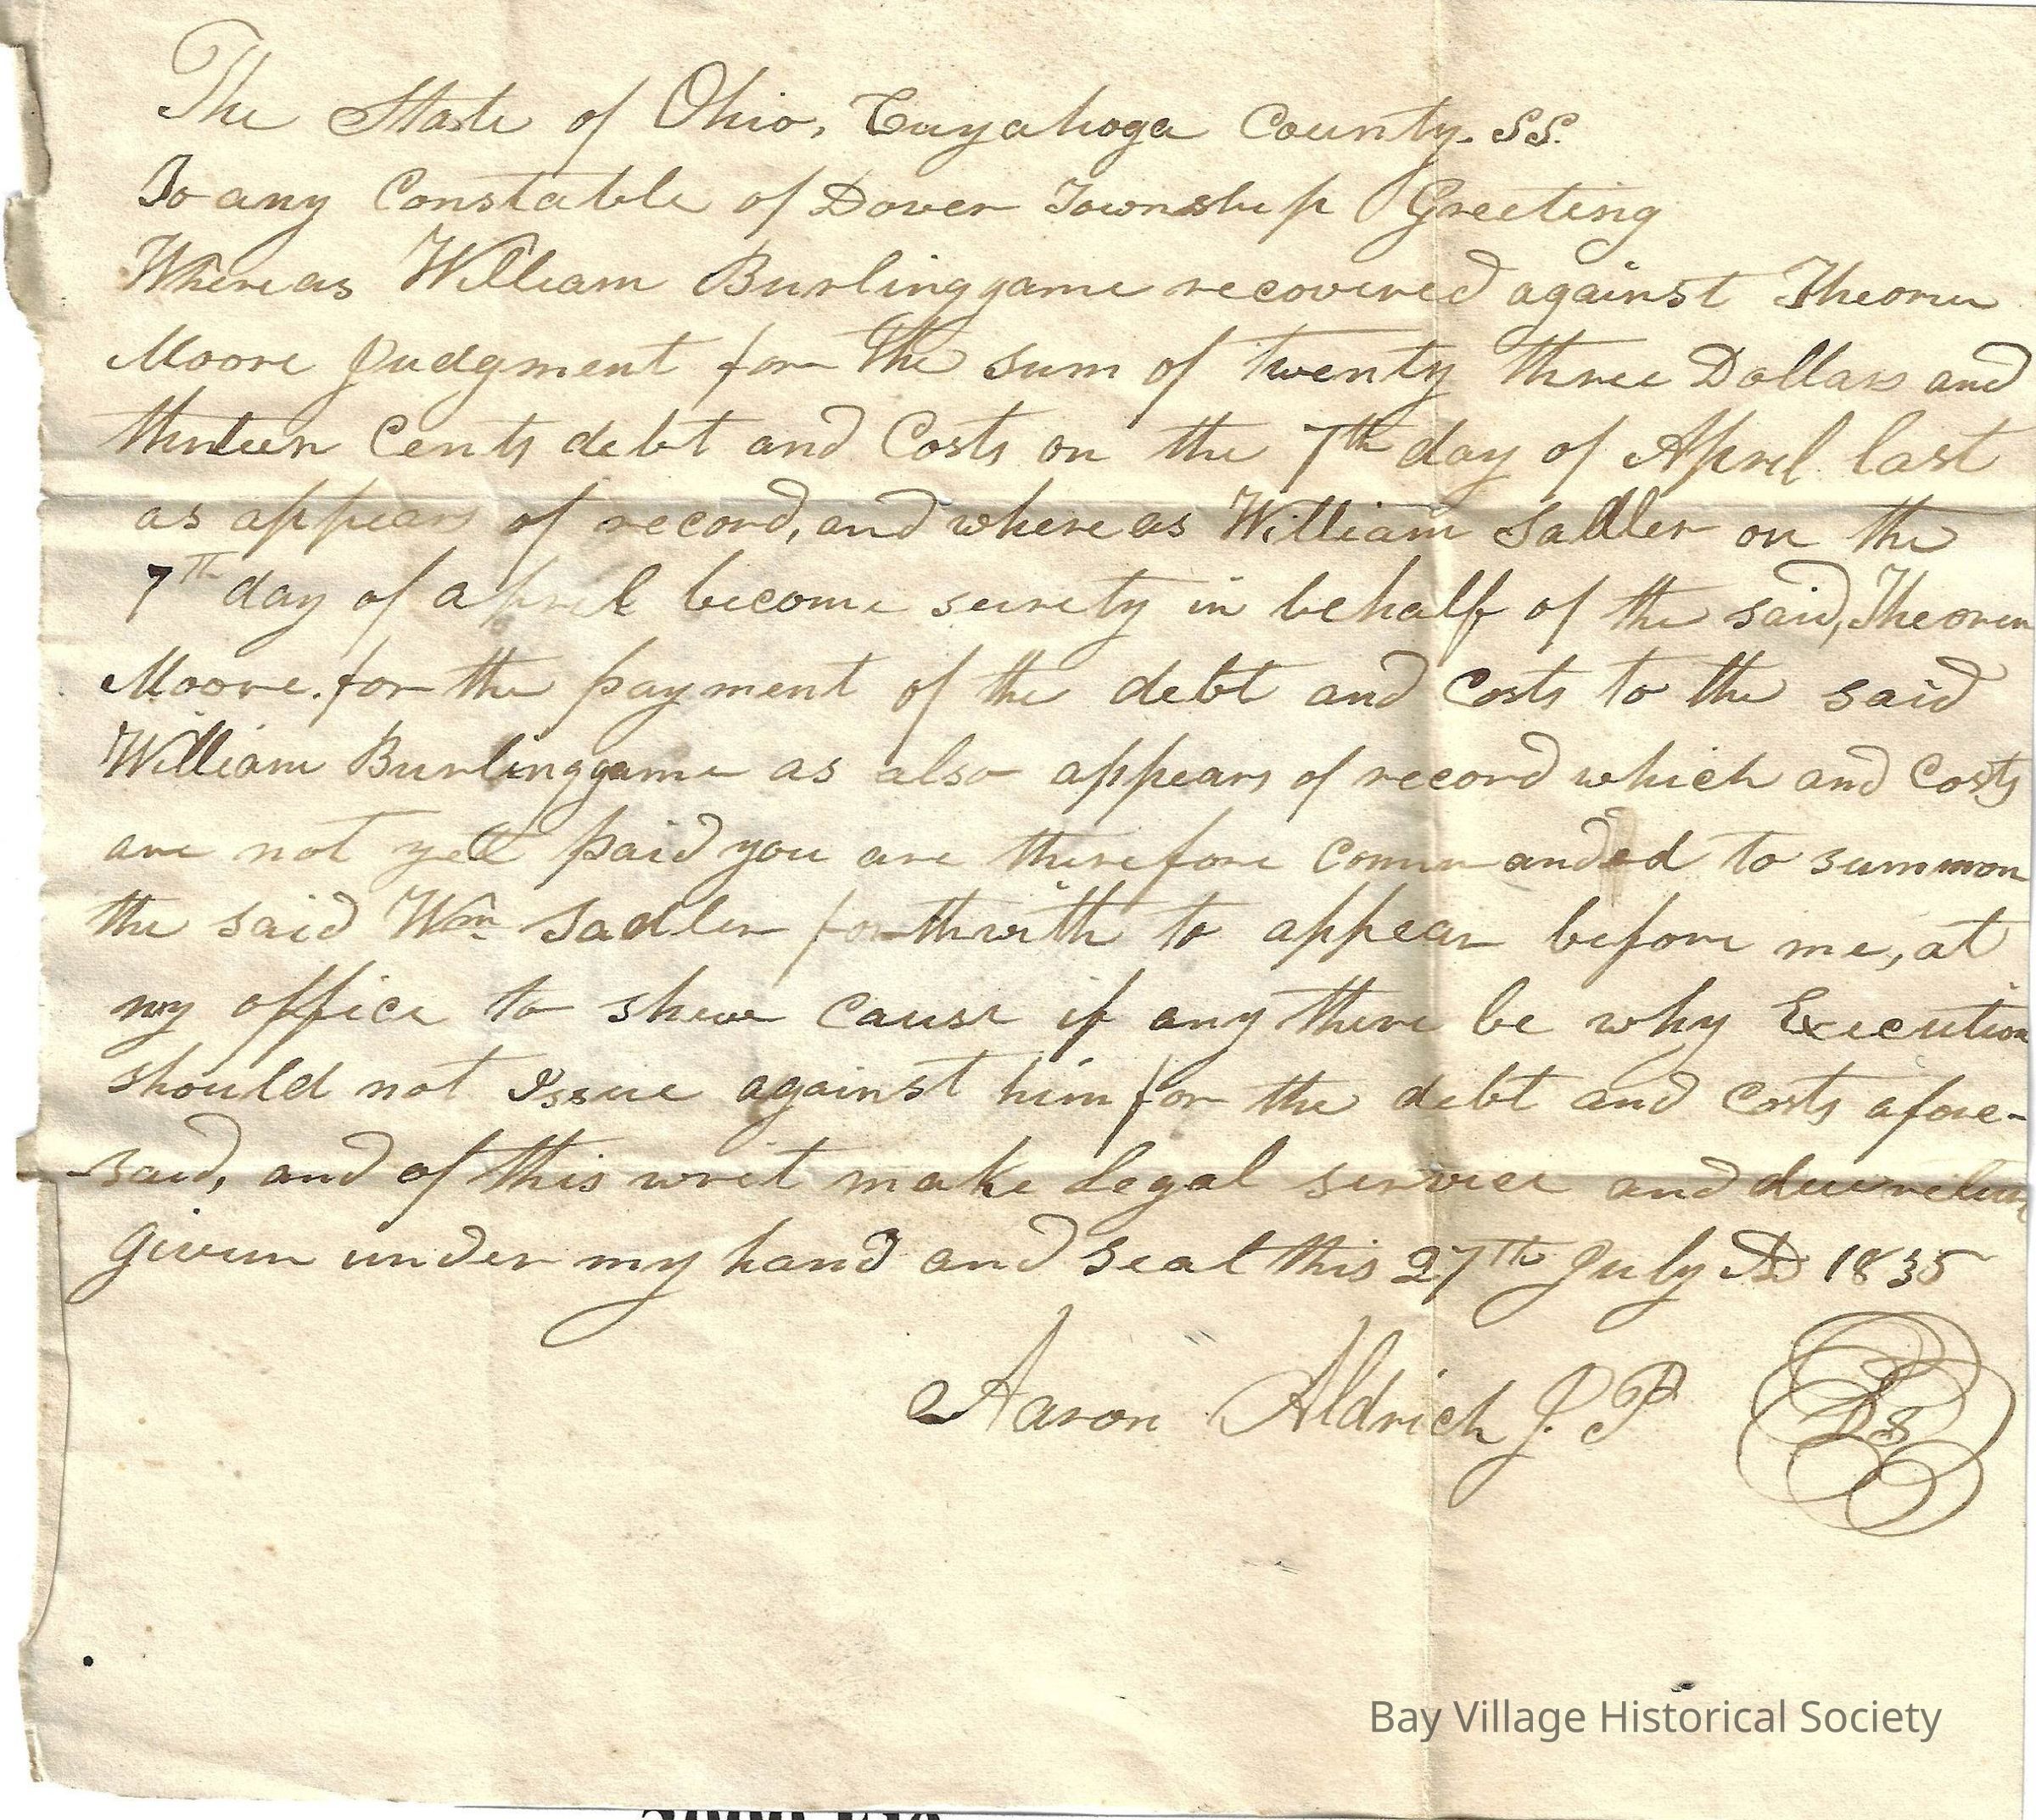 The State of Ohio, Cuyahoga County. SS.
To any Constable of Dover Township Greeting
Whereas William Burlinggame recovered against Theoren
Moore Judgment for the sum of twenty three Dollars and
thirteen Cents debt and Costs on the 7th day of April last
as appears of record, and where as William Sadler on the
7th day of april become surety in behalf of the said, Theoren
Moore. for the payment of the debt and Costs to the said
William Burlinggame as also appears of record which and Costs
are not yett paid you are therefore commanded to summon
the said Wm Sadler forthwith to appear before me, at
my office to shew cause if any there be why Execution
should not Issue against him for the debt and Costs afore-
-said, and of this writ make legal service and due return
given under my hand and seal this 27th July AD 1835
Aaron Aldrich J. P. LS
Bay Village Historical Society